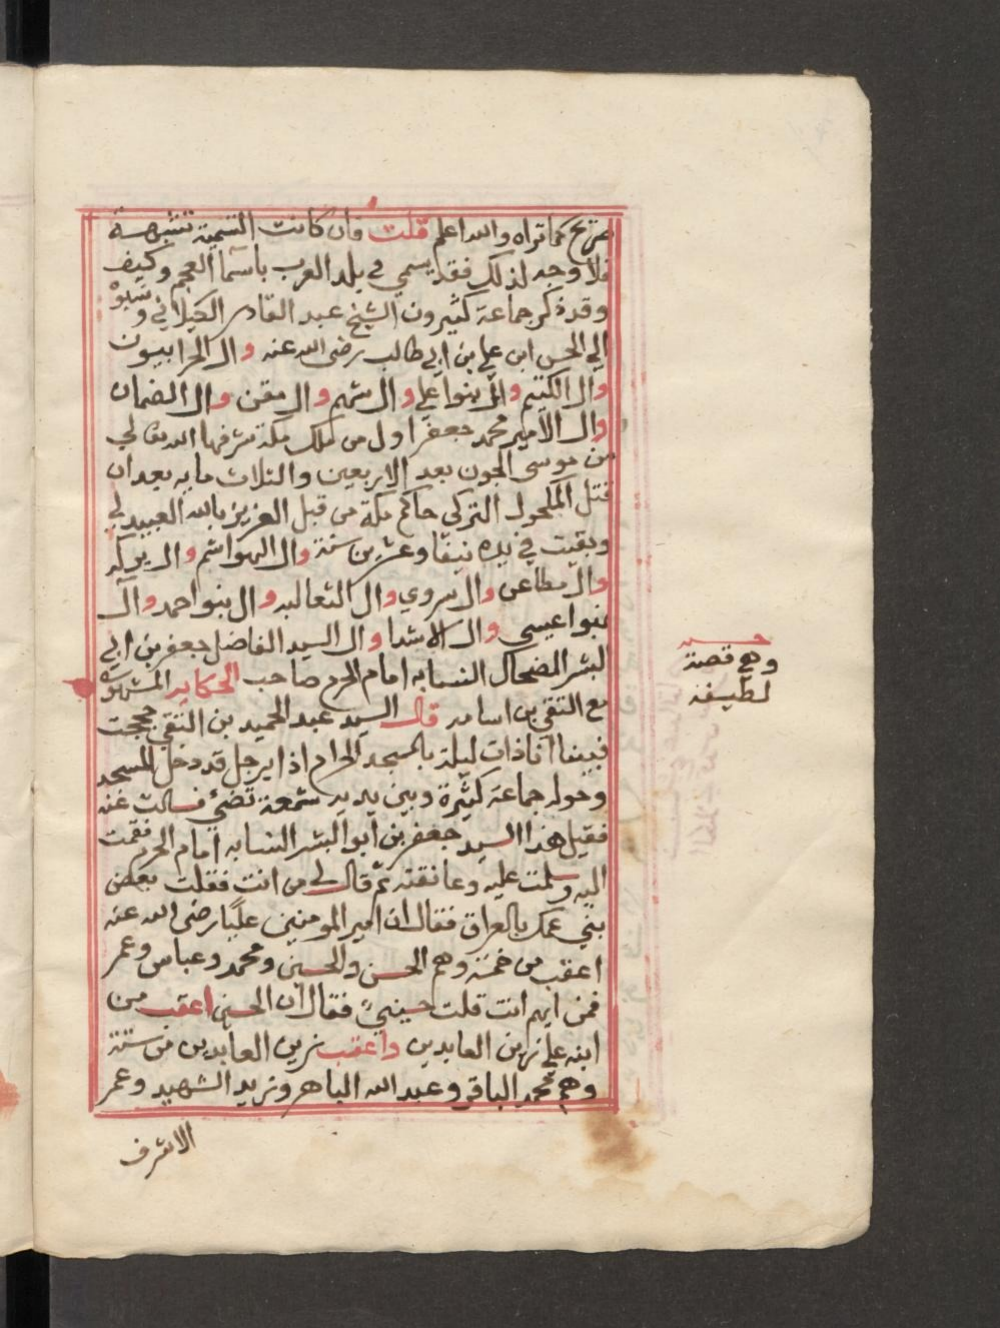 صريح كما تراه والله اعلم قلت فان كانت التسمية تشبهه
فلا وجه لذلك فقد يسمي في بلد العرب باسما العجم وكيف
وقد ذكر جماعة كثيرون الشيخ عبد القادر الكيلاني ونسبوه
الي الحسن ابن علي بن ابي طالب رضى الله عنه وال الحرابيون
وال الكتيم وال بنوا علي وال شهم وال مقن وال الضمان
وال الامير محمد جعفر اول من ملك مكة شرفها الله تعالي
من موسى الجون بعد الاربعين والثلاث مايه بعد ان
قتل الملحول التركي حاكم مكة من قبل العزيز بالله العبيدلي
وبقيت في يده نيفا وعشرين سنة وال الهواشم وال بركه
وال مطاعن وال سروي وال الثعالبه وال بنوا احمد وال
بنوا عيسي وال الاشدا وال السيد الفاضل جعفر بن ابي
البشر الضحاك النسابه امام الحرم صاحب الحكايه المشهوره
مع التقي بن اسامه قال السيد عبد الحميد بن التقي حججت
فبينا انا ذات ليلة بالمسجد الحرام اذا برجل قد دخل المسجد
وحوله جماعة كثيرة وبين يديه شمعة تضئ فسالت عنه
فقيل هذا السيد جعفر بن أبو البشر النسابه امام الحرم فقمت
اليه وسلمت عليه وعانقته ثم قال لي من انت فقلت بعض
بني عمك بالعراق فقال ان امير المومنين عليًا رضى الله عنه
اعقب من خمسة وهم الحسن والحسين ومحمد وعباس وعمر
فمن ايهم انت قلت حسينيٌ فقال ان الحسين اعقب من
ابنه علي زين العابدين واعقب زين العابدين من ستة
وهم محمد الباقر وعبد الله الباهر وزيد الشهيد وعمر
الاشرف
وهي قصة
لطيفه